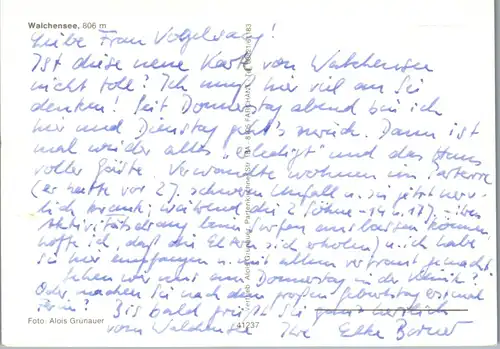 Walchensee, 806 m
Liebe Frau Vogelsang!
Ist diese neue Karte von Walchensee
nicht toll? Ich muß hier viel an Sie
denken! Seit Donnerstag abend bin ich
hier und Dienstag geht's zurück. Dann ist
mal wieder alles "erledigt" und das Haus
voller Gäste. Verwandte wohnen im Parterre
(er hatte vor 27. schweren Unfall u. sie jetzt
krank; während die 2 Söhne - 14 u. 17
Aktivitätsdrang Surfen können
hoffe ich, daß die Eltern sich erholen) u. ich habe
sie hier empfangen u. mit allem vertraut gemacht.
Sehen wir uns am Donnerstag in der Klinik?
Oder machen Sie nach dem großen Geburtstag erst mal
Ferien? Bis bald grüßt Sie
vom Walchensee Ihre Elke
Foto: Alois Grunauer
41237